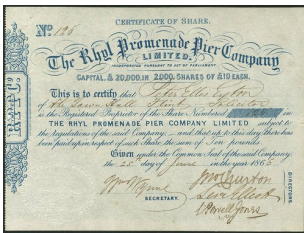 CERTIFICATE OF SHARE.
No 126
The Rhyl Promenade Pier Company
LIMITED.
INCORPORATED PURSUANT TO ACT OF PARLIAMENT
CAPITAL, £ 20,000. IN 2,000 SHARES OF £10 EACH.
This is to certify that Peter Ellis Eyton
of the Hall Flint Solicitor
is the Registered Proprietor of the Share Numbered subject to
THE RHYL PROMENADE PIER COMPANY LIMITED
the regulations of the said Company; and that up to this day there has
been paid up in respect of such Share, the sum of Ten pounds.
Given under the Common Seal of the said Company,
the 28 day of June in the year 1865
SECRETARY.
DIRECTORS